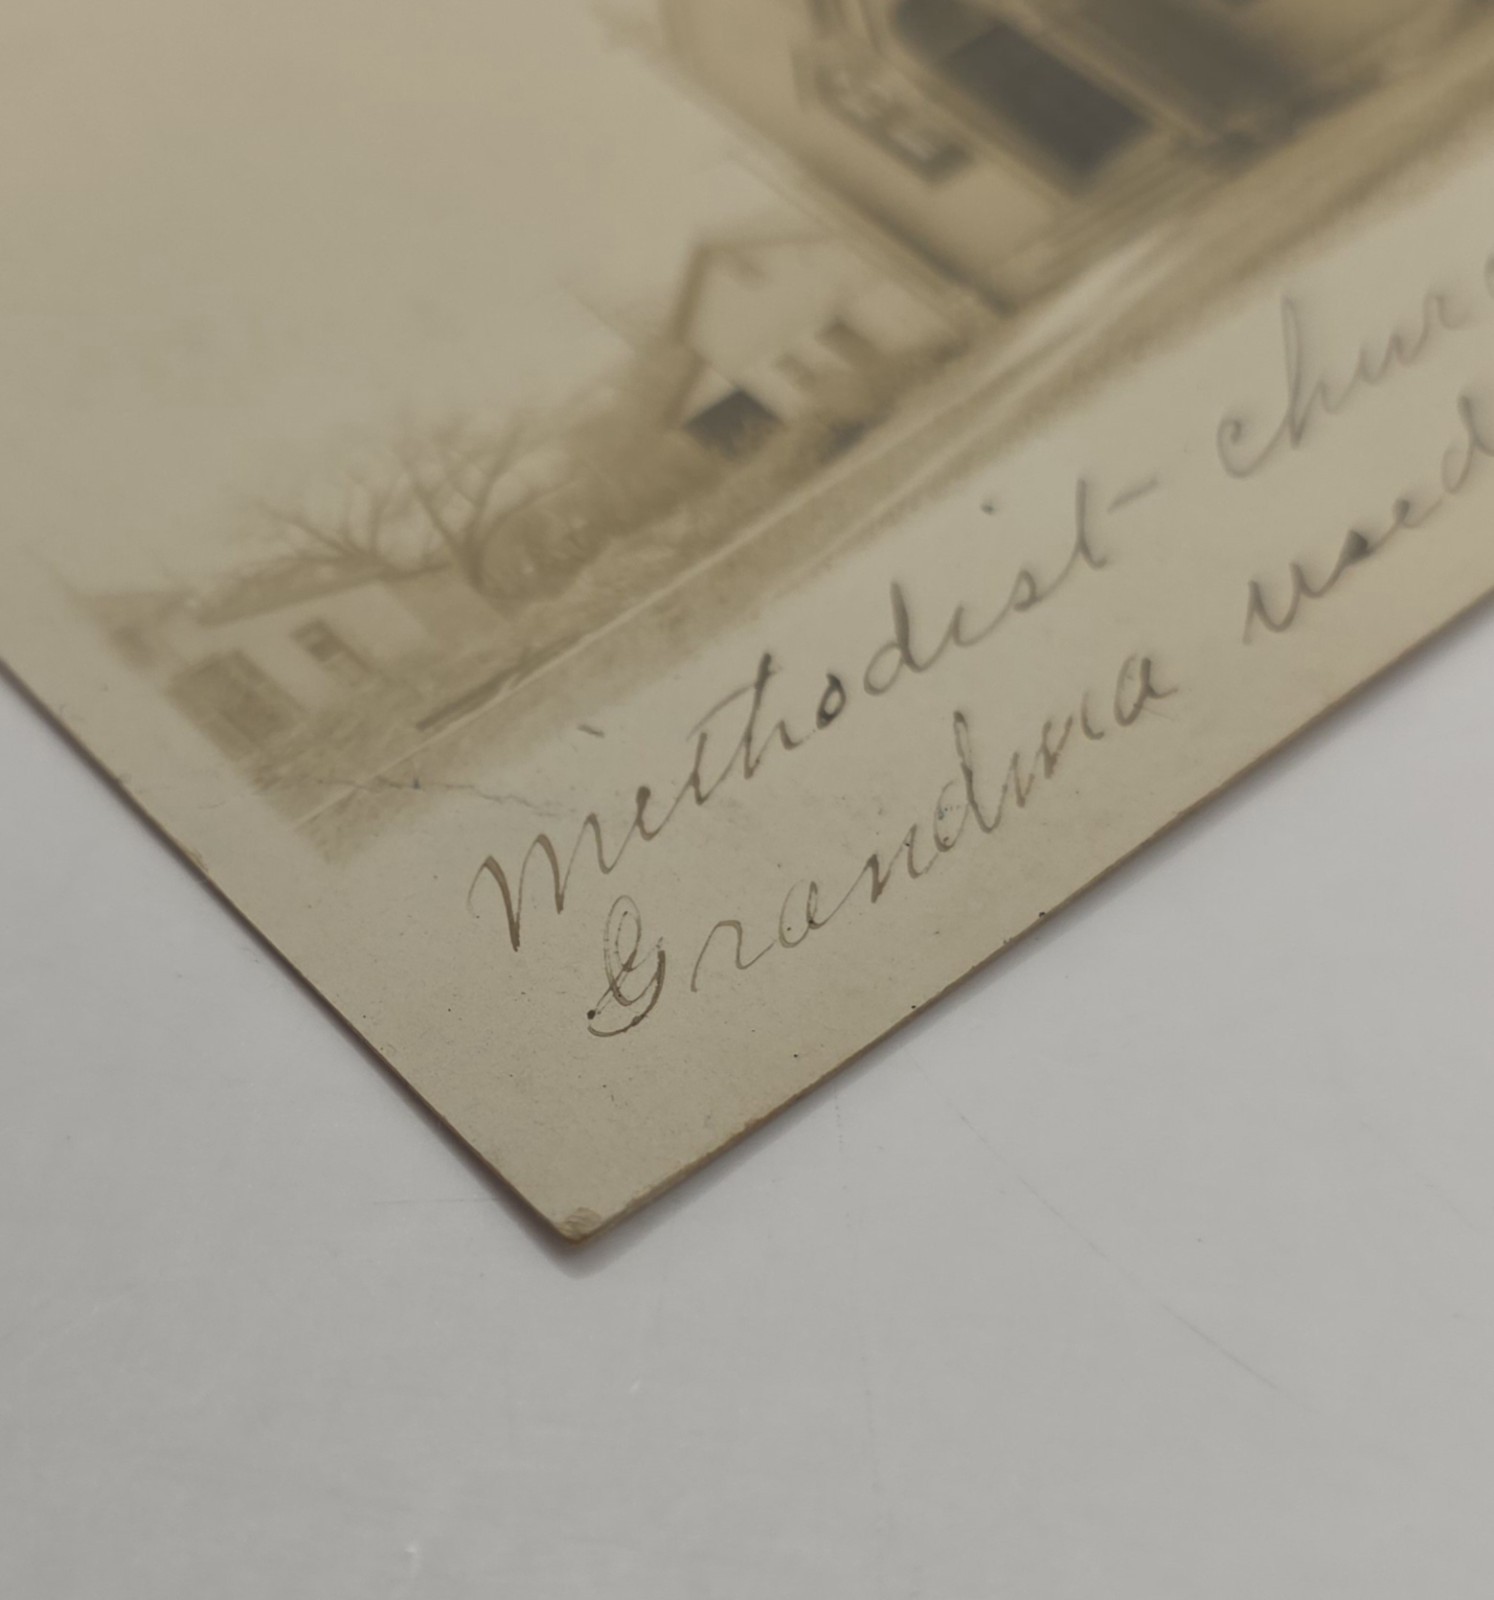 Methodist churc
Grandma used